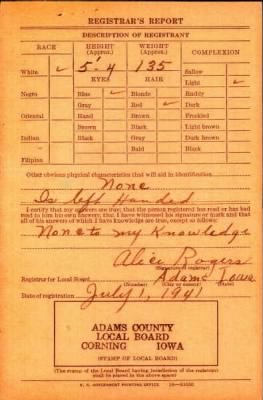 REGISTRAR'S REPORT
DESCRIPTION OF REGISTRANT
RACE HEIGHT (Approx.) WEIGHT (Approx.) COMPLEXION
White ✓ 5' 4 135 Sallow
EYES HAIR Light ✓
Negro Blue ✓ Blonde Ruddy
Gray Red ✓ Dark
Oriental Hazel Brown Freckled
Brown Black Light brown
Indian Black Gray Dark brown
Bald Black
Filipino
Other obvious physical characteristics that will aid in identification
None
Is left Handed
I certify that my answers are true; that the person registered has read or has had
read to him his own answers; that I have witnessed his signature or mark and that
all of his answers of which I have knowledge are true, except as follows:
None to my Knowledge
Alice Rogers
(Signature of registrar)
Registrar for Local Board Adams Iowa
(Number) (City or county) (State)
Date of registration July 1, 1941
ADAMS COUNTY
LOCAL BOARD
CORNING IOWA
(STAMP OF LOCAL BOARD)
(The stamp of the Local Board having jurisdiction of the registrant
shall be placed in the above space)
U. S. GOVERNMENT PRINTING OFFICE